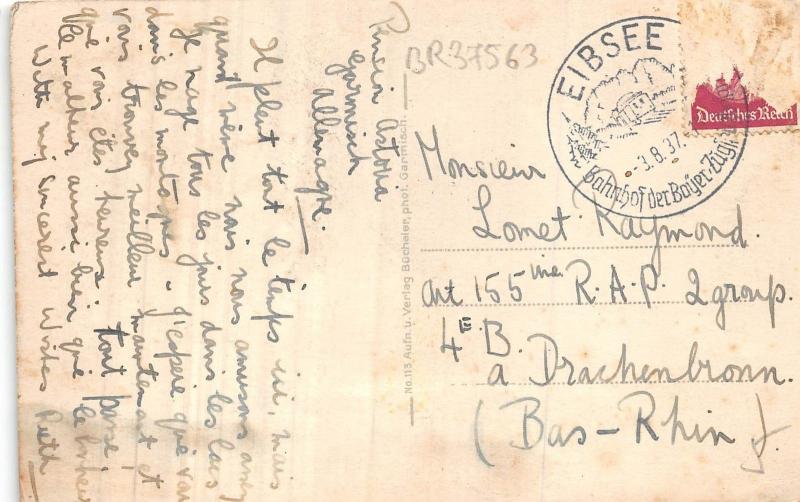 Pension Astoria
Garmisch
Allemagne.
Il pleut tout le temps ici, mais
quand même nous nous amusons assez
Je nage tous les jours dans les lacs
dans les montagnes. J'espère que vous
vous trouvez meilleur maintenant et
que vous êtes heureux; tout passe;
le malheur aussi bien que le bonheur
With my sincerest Wishes Ruth
No. 113 Aufn. u. Verlag Büchaler, phot. Garmisch.
BR37563
EIBSEE
-3.8.37.
Bahnhof der Bayer. Zugsp
Deutsches Reich
Monsieur
Lomet Raymond.
Art 155me R.A.P. 2group.
4E B.
a Drachenbronn.
(Bas-Rhin).